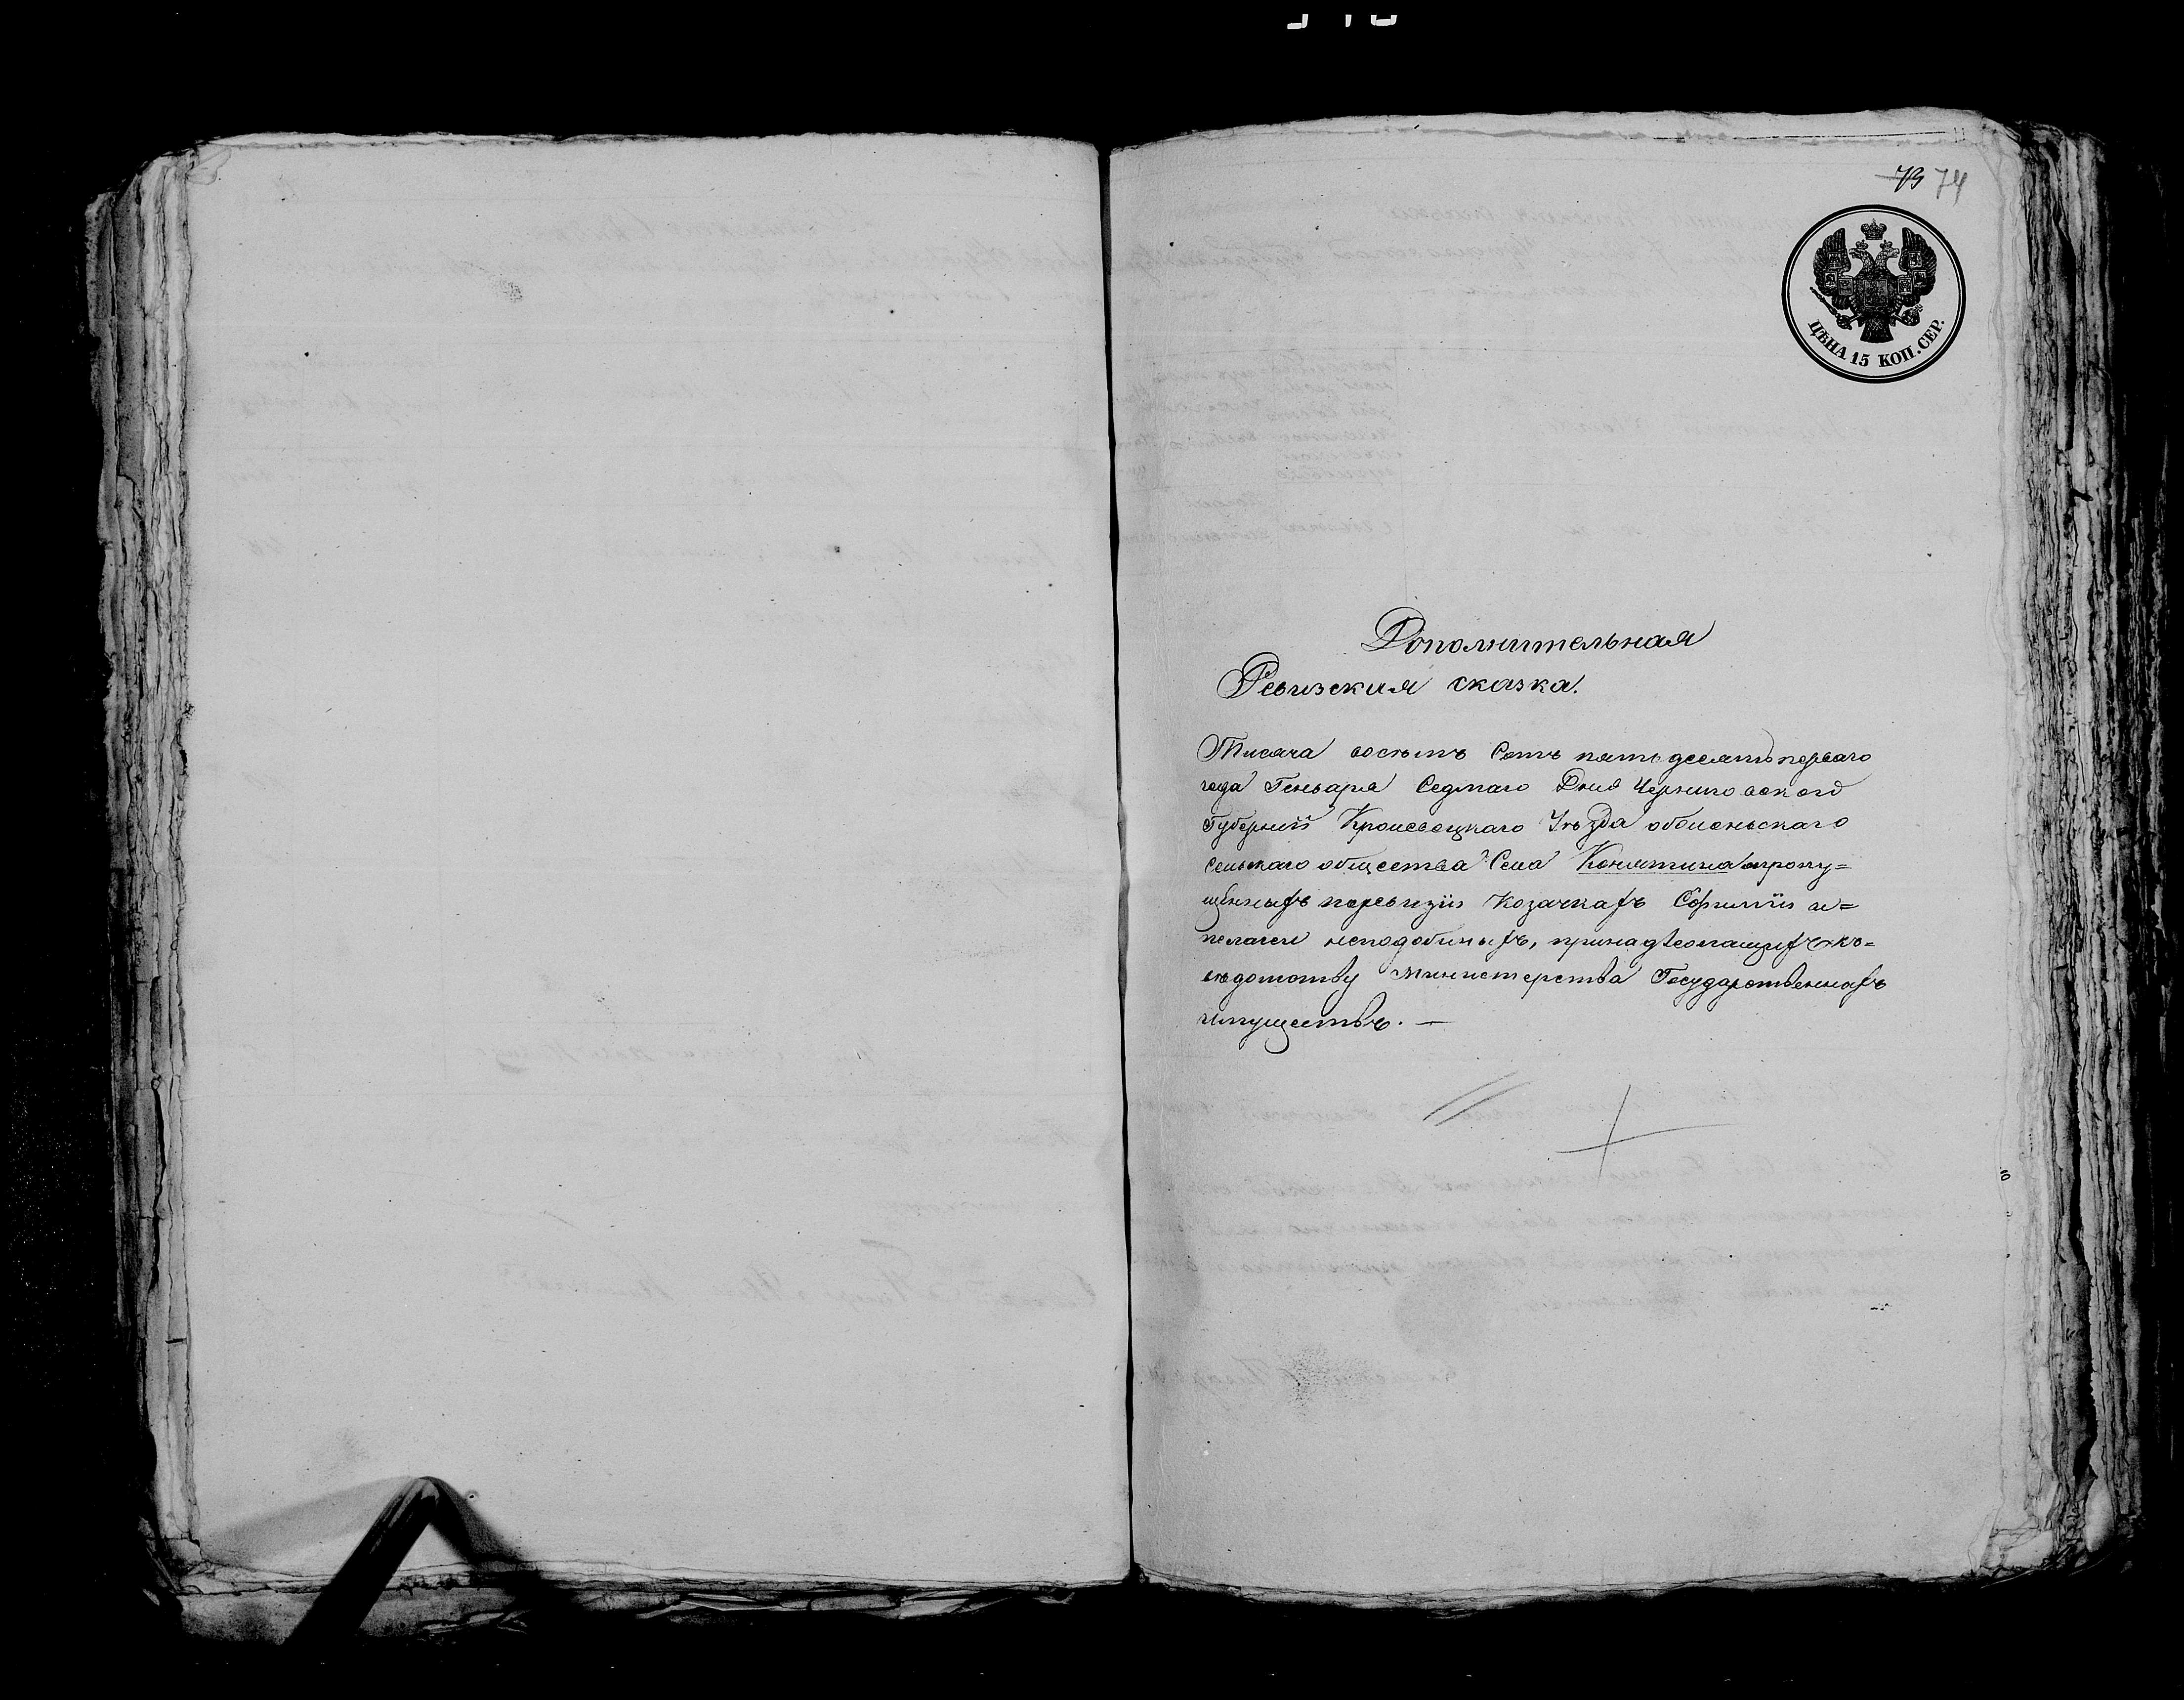 73 74
ЦѢНА 15 КОП. СЕР.
Дополнительная
Ревизская сказка.
Тисяча восемъ Сотъ пятьдесятъ перваго
года Генваря Седмаго Дня Черниговской
Губерніи Кролевецкаго Уѣзда оболоньскаго
сельскаго общества Села Конятина опропу=
щенныхъ поревизіи Козачкахъ Софиіи и=
пелагеи неподобныхъ, принадлежащихъ къ=
вѣдомству Министерства Государственныхъ
имуществъ. —